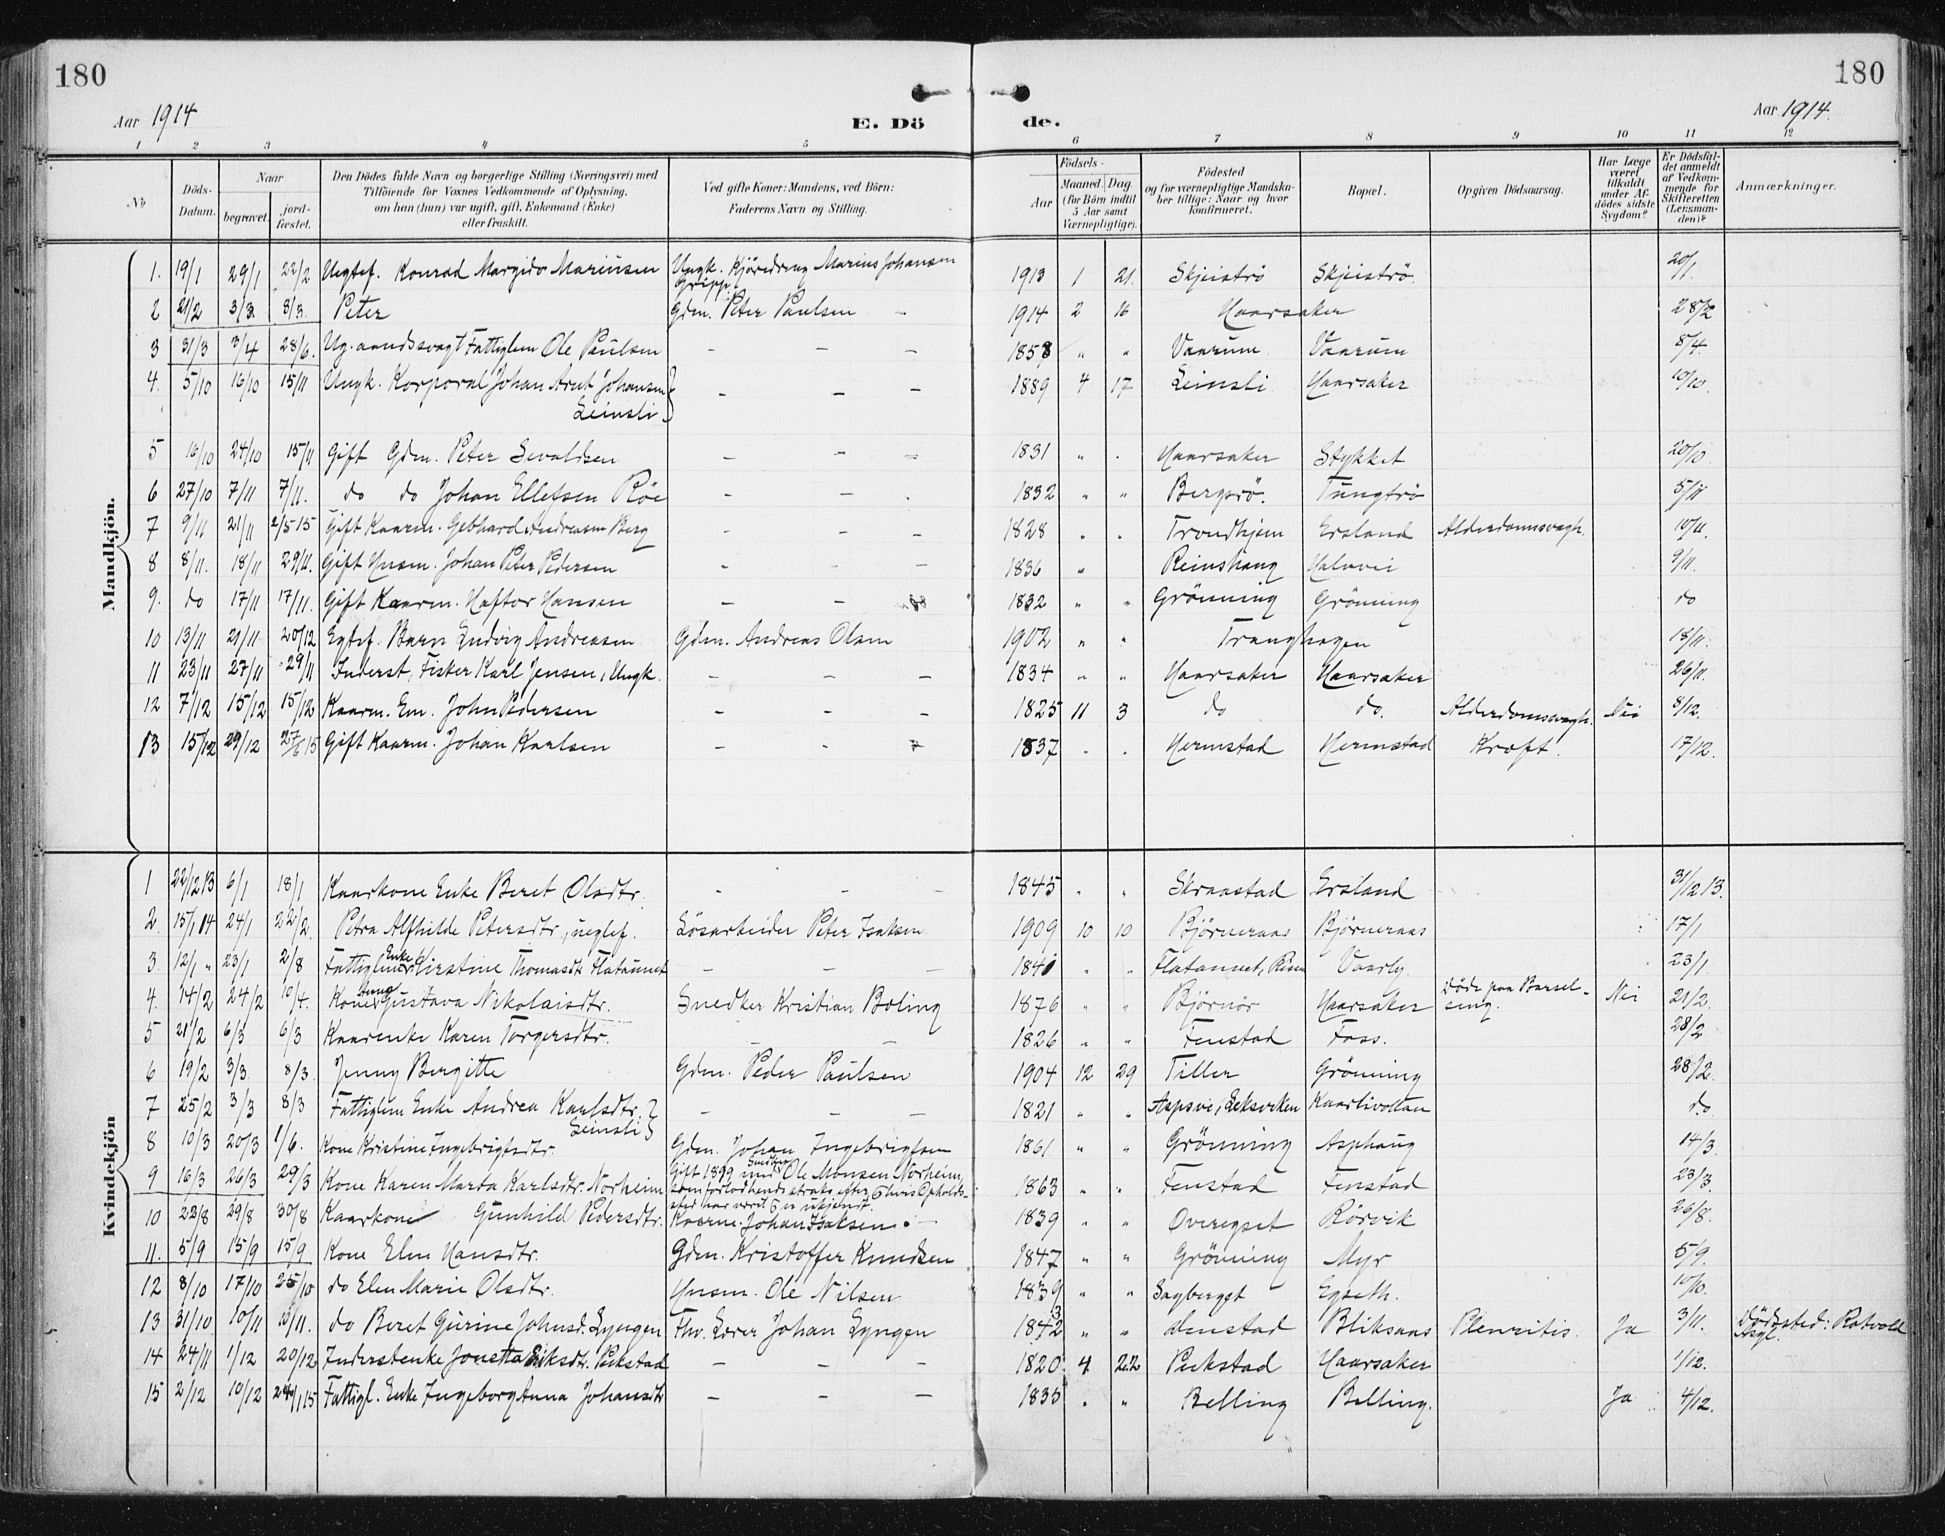 180
180
Aar 1914
Aar 1914.
E. Dö
de.
1 2 3 4 5 6 7 8 9 10 11 12
№
Döds-Datum.
Naar
begravet.
jord-fæstet.
Den Dödes fulde Navn og borgerlige Stilling (Næringsvei) med
Tilföiende for Voxnes Vedkommende af Oplysning,
om han (hun) var ugift, gift, Enkemand (Enke)
eller fraskilt.
Ved gifte Koner: Mandens, ved Börn:
Faderens Navn og Stilling.
Födsels-
Aar
Maaned.
Dag.
(for Börn indtil
5 Aar samt
Værnepligtige).
Födested
og for værnepligtige Mandska-
ber tillige: Naar og hvor
konfirmeret.
Bopæl.
Opgiven Dödsaarsag.
Har Læge
været
tilkaldt
under Af-
dödes sidste
Sygdom?
Er Dödsfal-
det anmeldt
af Vedkom-
mende for
Skifteretten
(Lensman-
den)?
Anmærkninger.
Mandkjön.
1. 19/1 29/1 22/2 Uegtef. Konrad Margido Mariusen Ungk. Kjöredreng Marius Johansen 1913 1 21. Skjeiströ Skjeiströ. 20/1.
2 21/2 3/3. 8/3. Peter Gdm. Peter Paulsen – 1914 2 16 Haarsaker 28/2
3 31/3 3/4 28/6. Ug. aandssvagt Fattiglem Ole Paulsen – – – 1858 " " Vaarum. Vaarum 8/4.
4. 5/10 16/10 15/11 Ungk. Korporal Johan Arnt Johansen – – – 1889 4 17 Leinsli Haarsaker 10/10.
Leinsli
5 16/10 24/10 15/11 Gift Gdm. Peter Sevaldsen – – – 1831 " . Haarsaker Stykket 20/10.
6 27/10 7/11 7/11. do do Johan Ellefsen Röe – – . 1832 " " Bergsrö. Tungtrö 5/11
7 9/11 21/11 2/5 15 Gift Kaarm. Gebhard Andreasen Berg – – – 1828 " . Trondhjem Ersland Alderdomssvagh. 10/11.
8 8/11. 18/11 29/11. Gift Husm. Johan Peter Pedersen – – – 1836 " Reinshaug Halsvei 9/11.
9. do 17/11 17/11. Gift Kaarm. Haftor Hansen – – 1832 " " Grönning Grönning do
10 13/11 21/11 20/12 Egtef. Barn Ludvig Andreasen Gdm. Andreas Olsen 1902 " " Tranghagen 18/11.
11 23/11 27/11 29/11 Inderst, Fisker Karl Jensen, Ungk. – – – 1834 " " Haarsaker Haarsaker 26/11.
12 7/12 15/12 15/12 Kaarm. Em. John Pedersen – – – 1825 11 3 do do. Alderdomssvagh. Nei 8/12.
13 15/12 29/12 27/6 15 Gift Kaarm. Johan Karlsen – – – 1837 . . Hermstad Hermstad Kræft. 17/12.
Kvindekjön
1 22/12 13 6/1 18/1 Kaarkone Enke Beret Olsdtr. – – – 1845 " " Skraastad Ersland 31/12 13.
2. 15/1 14 24/1 22/2. Petra Alfhilde Petersdtr., uegtef. Lösarbeider Peter Isaksen 1909 10 10 Björneraas Björneraas 17/1
3. 12/1 " 23/1 2/8 Fattiglem Enke Kirstine Thomasdtr. Flataunet – – – 1841 " " Flataunet, Vaarly 23/1
4. 14/2 24/2 10/4. Kone Anna Gustava Nikolaisdtr. Snedker Kristian Boling 1876 " " Björnör Haarsaker Döde paa Barsel-
seng. Nei 21/2.
5 21/2 6/3 6/3 Kaarenke Karen Torgersdtr. – – 1826 " " Fenstad Foss. 28/2
6 19/2 3/3. 8/3. Jenny Bergitte Gdm. Peder Paulsen 1904 12 29 Tiller Grönning 28/2.
7 25/2 3/3 8/3 Fattiglem Enke Andrea Karlsdtr. – – – 1821 " " Leksviken Kaarlivoldan do.
Leinsli
8 10/3 20/3 1/6. Kone Kristine Ingebrigtsdtr. Gdm. Johan Ingebrigtsen 1861 " " Grönning Asphaug 14/3.
9 16/3 26/3 29/3 Kone Karen Marta Karlsdtr. Norheim Gift 1899 med Ole Monsen Norheim, 1863 " " Fenstad Fenstad 23/3.
10 22/8 29/8 30/8 Kaarkone Gunhild Pedersdtr. Kaarm. Johan Isaksen. – 1839 " " Overegset Rörvik 26/8.
11. 5/9 15/9 15/9 Kone Elen Hansdtr. Gdm. Kristoffer Knudsen 1847 " " Grönning Myr 5/9.
12 8/10 17/10 25/10 do Elen Marie Olsdtr. Husm. Ole Nilsen 1839 " " Sagberget Egseth. 10/10.
13 31/10 10/11 10/11. do Beret Gurine Johnsd. Lyngen Fhv. Lærer Johan Lyngen 1843 " " denstad Bliksaas Pleuritis. Ja 3/11. Dödssted: Rotvold
Asyl.
14 24/11 1/12 20/12 Inderstenke Jonetta Eriksdtr. Pukstad – – – 1820 4 22 Pukstad Haarsaker 1/12.
15 2/12 10/12 24/1 15 Fattigl. Enke Ingeborg Anna Johansdtr – – – 1835 " " Belling Belling. Ja 4/12.